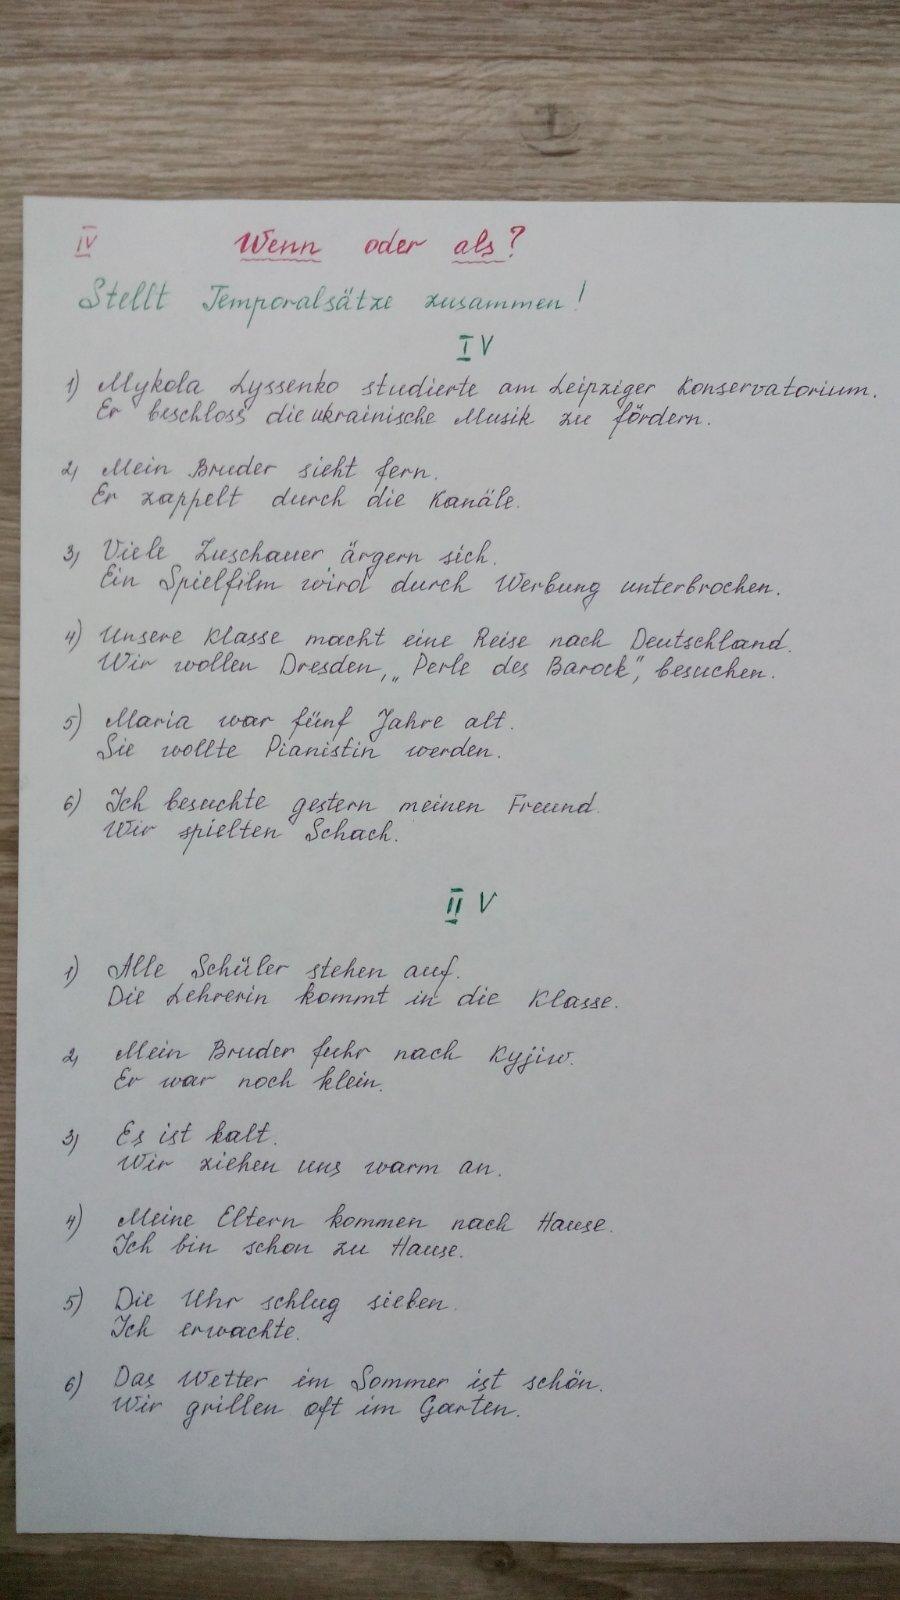 IV Wenn oder als?
Stellt Temporalsätze zusammen!
I V
1) Mykola Lyssenko studierte am Leipziger Konservatorium.
Er beschloss die ukrainische Musik zu fördern.
2) Mein Bruder sieht fern.
Er zappelt durch die Kanäle.
3) Viele Zuschauer ärgern sich.
Ein Spielfilm wird durch Werbung unterbrochen.
4) Unsere Klasse macht eine Reise nach Deutschland.
Wir wollen Dresden, „Perle des Barock", besuchen.
5) Maria war fünf Jahre alt.
Sie wollte Pianistin werden.
6) Ich besuchte gestern meinen Freund.
Wir spielten Schach.
II V
1) Alle Schüler stehen auf.
Die Lehrerin kommt in die Klasse.
2) Mein Bruder fuhr nach Kyjiw.
Er war noch klein.
3) Es ist kalt.
Wir ziehen uns warm an.
4) Meine Eltern kommen nach Hause.
Ich bin schon zu Hause.
5) Die Uhr schlug sieben.
Ich erwachte.
6) Das Wetter im Sommer ist schön.
Wir grillen oft im Garten.